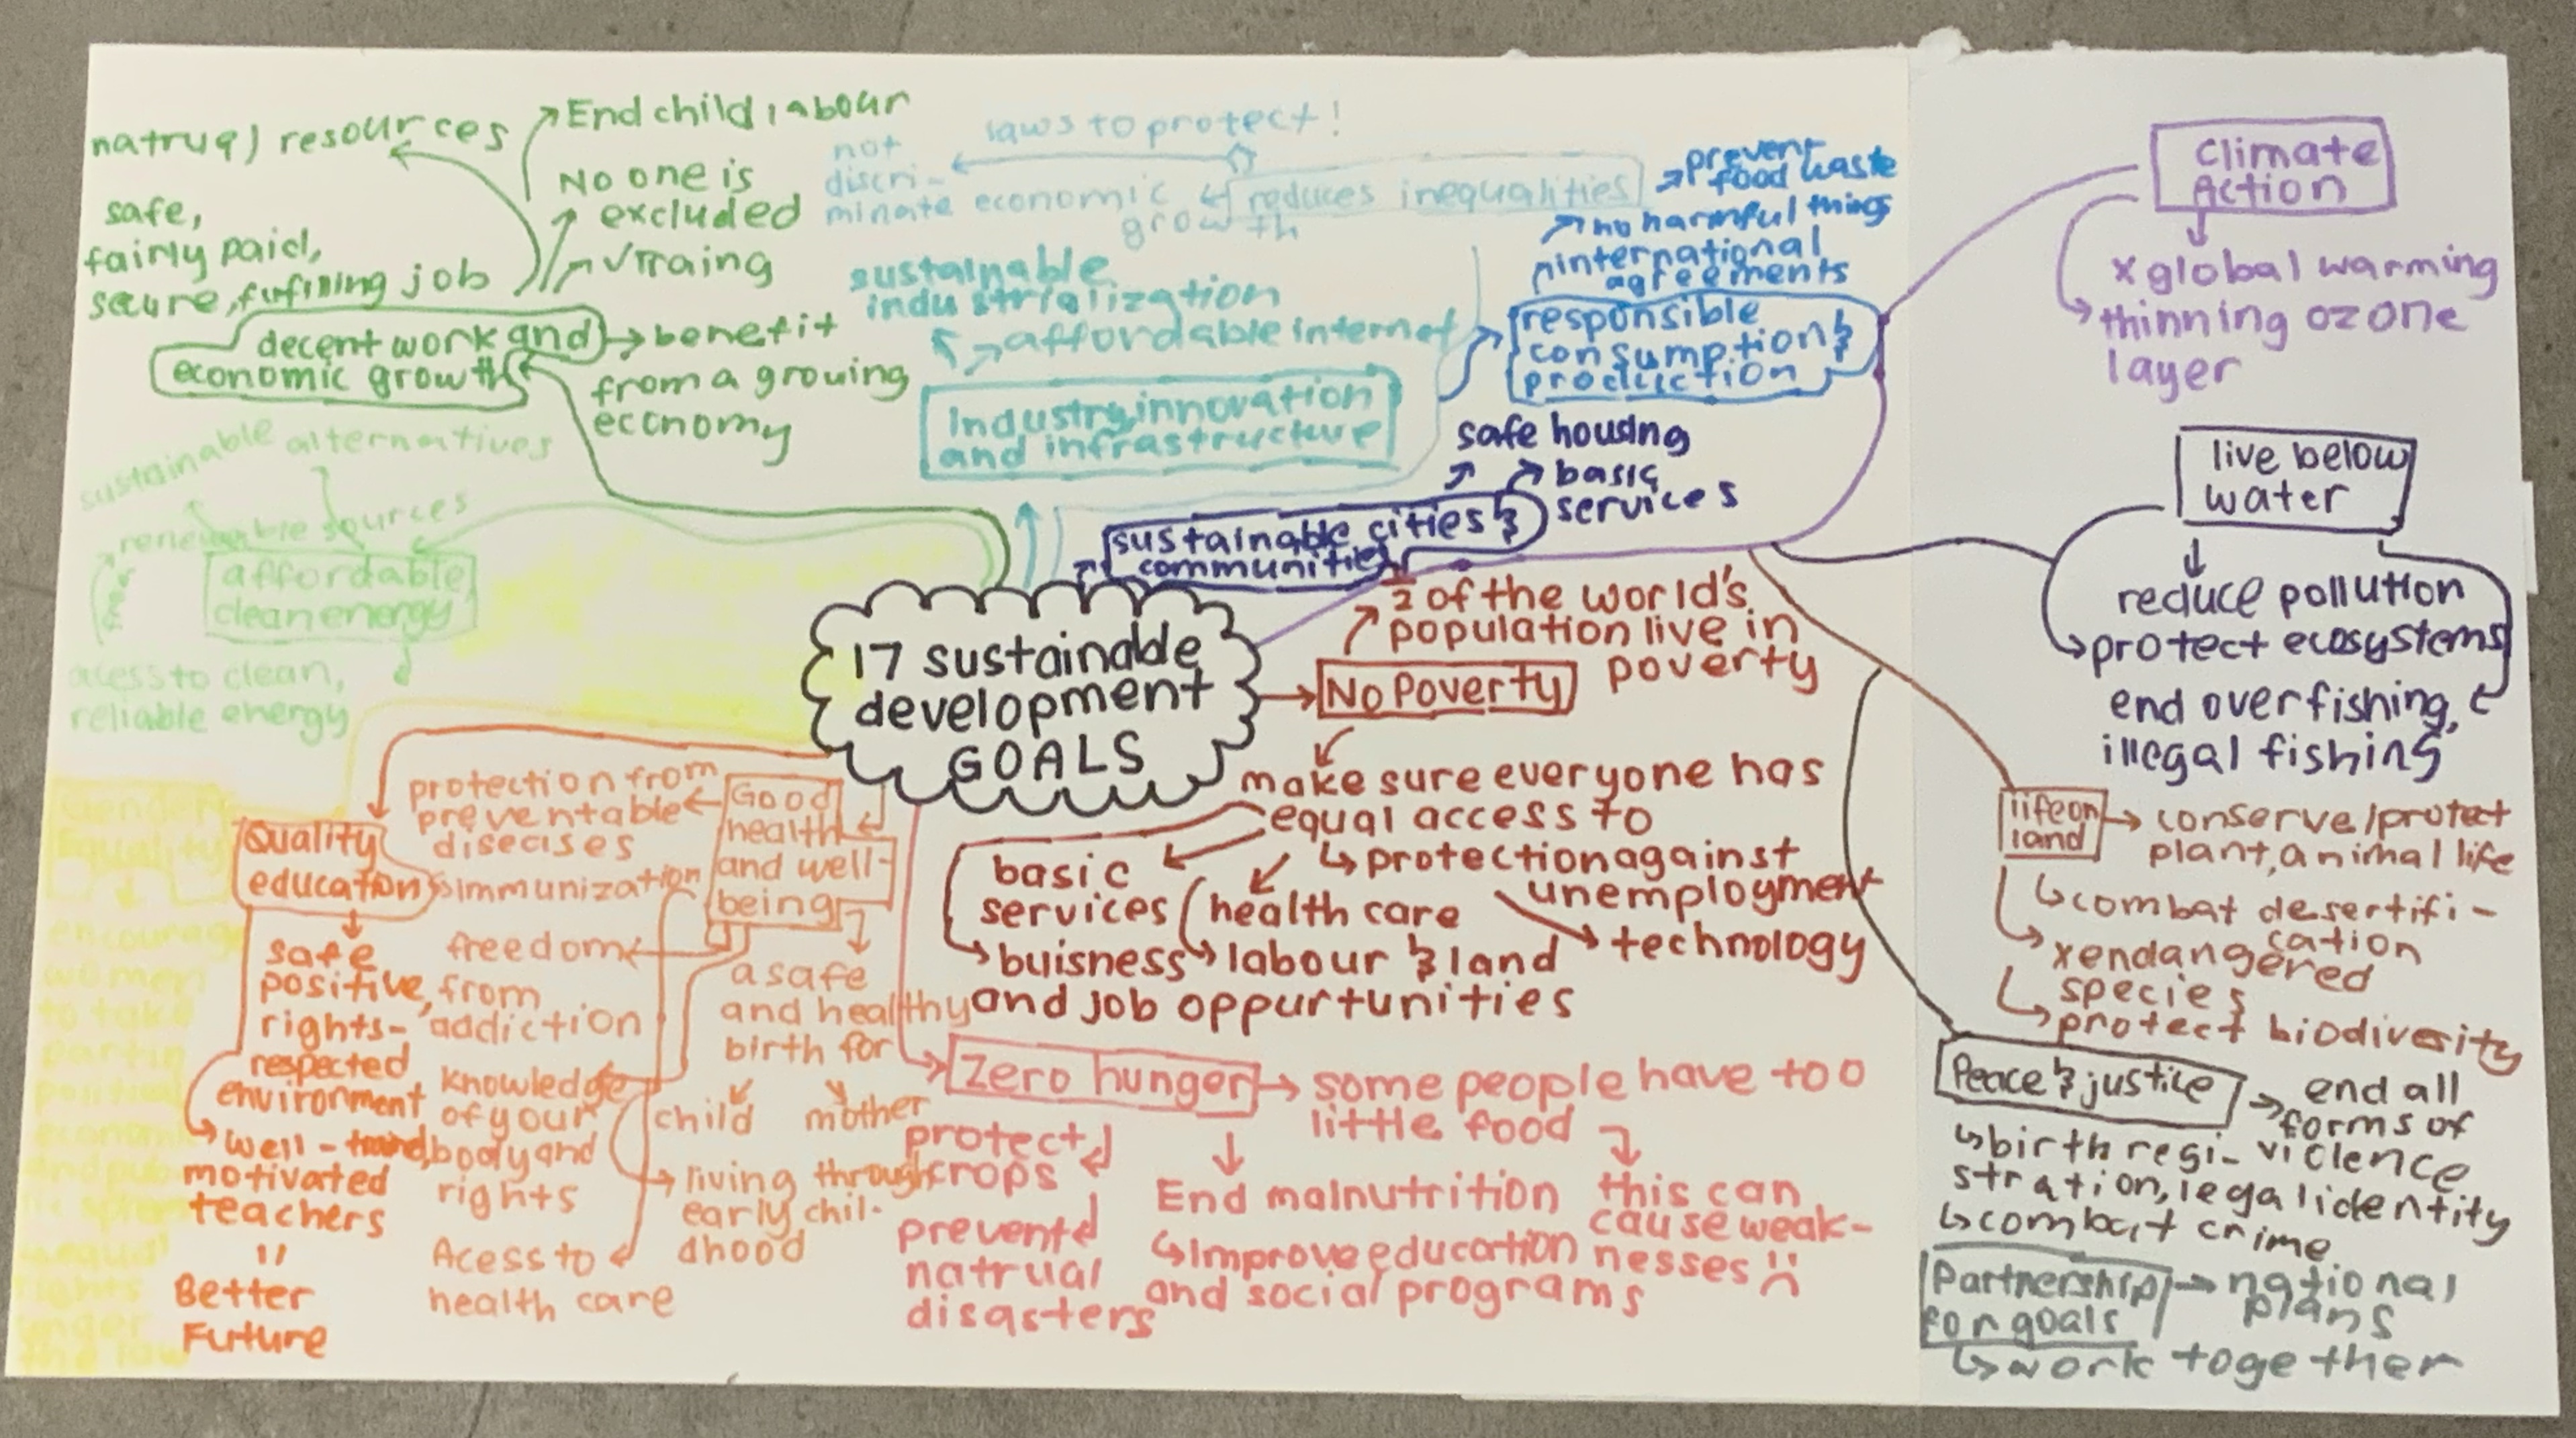 17 sustainable
development
GOALS
End child labour
natrual resources
No one is
excluded
✓Traing
safe,
fairly paid,
secure, fufining job
decent work and
economic growth
benefit
from a growing
economy
laws to protect!
not
discri-
minate
economic
growth
reduces inequalities
sustainable
industrialization
affordable internet
Industry, innovation
and infrastructure
prevent
food waste
no harmful things
international
agreements
responsible
consumption &
production
safe housing
basic
services
sustainable cities &
communities
sustainable alternatives
renewable sources
affordable,
clean energy
acess to clean,
reliable energy
Climate
Action
x global warming
thinning ozone
layer
live below
water
reduce pollution
protect ecosystems
end overfishing,
illegal fishing
life on
land
conserve/protect
plant, animal life
combat desertifi-
cation
x endangered
species
protect biodiversity
Peace & justice
end all
forms of
violence
birth regi-
stration, legal identity
combat crime
Partnership
for goals
national
plans
work together
½ of the world's
population live in
poverty
No Poverty
make sure everyone has
equal access to
protection against
unemployment
technology
basic
services
health care
labour & land
buisness
and job oppurtunities
Zero hunger
some people have too
little food
this can
cause weak-
nesses
End malnutrition
Improve education
and social programs
protect
crops
prevent
natrual
disasters
Good
health
and well-
being
protection from
preventable
diseases
immunization
freedom
from
addiction
knowledge
of your
body and
rights
Acess to
health care
a safe
and healthy
birth for
child
mother
living through
early chil-
dhood
Quality
education
safe
positive,
rights-
respected
environment
well-
motivated
teachers
=
Better
Future
Gender
Equality
encourage
women
to take
part in
political